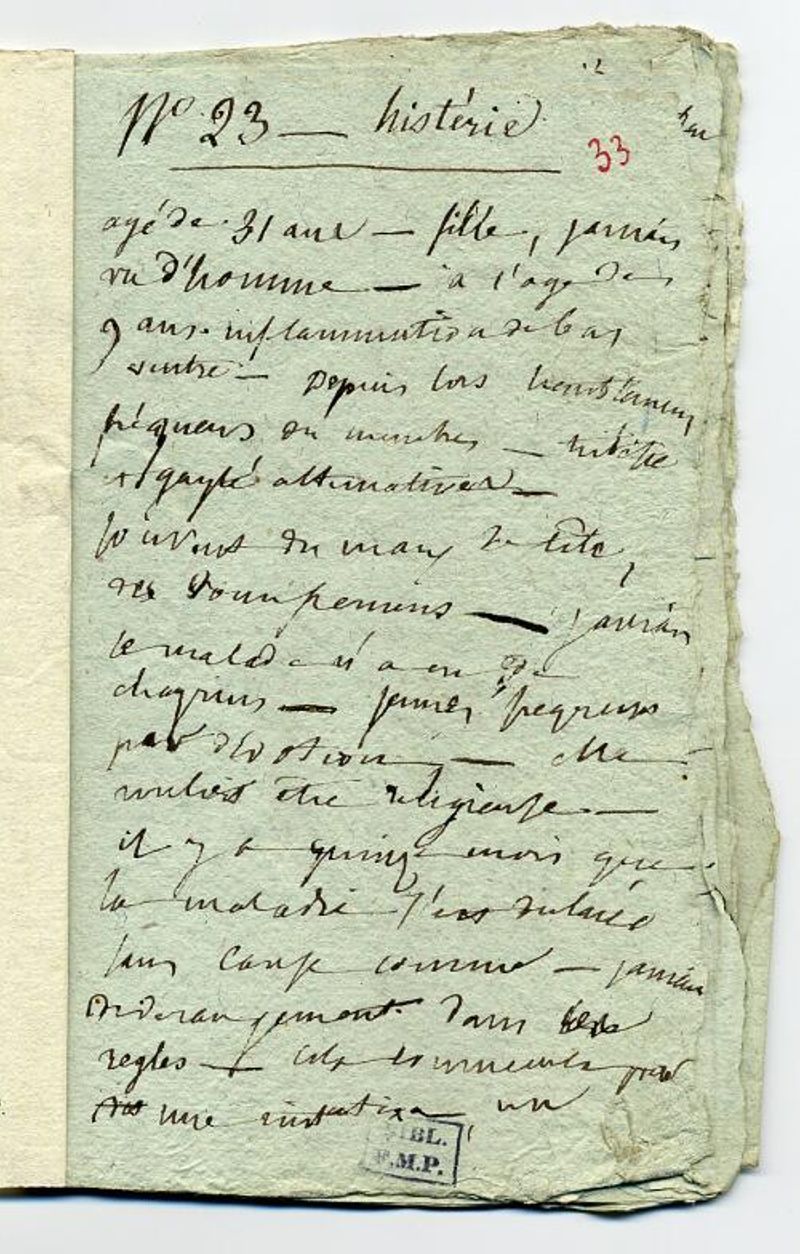 No 23 — histérie
33
agé de 31 ans — fille, jamais
vu d'homme — a l'age de
9 ans inflammation de bas
ventre — Depuis lors
frequens du membres — tristesse
et gayté alternatives —
souvent du maux de tête,
des — jamais
la malade n'a eu de
chagrins — jamais
par dévotion — elle
vouloit être religieuse —
il y a quinze mois que
la maladie s'est déclaré
sans cause connue — jamais
de derangement dans les
regles — cela commence par
une un
BIBL.
F.M.P.